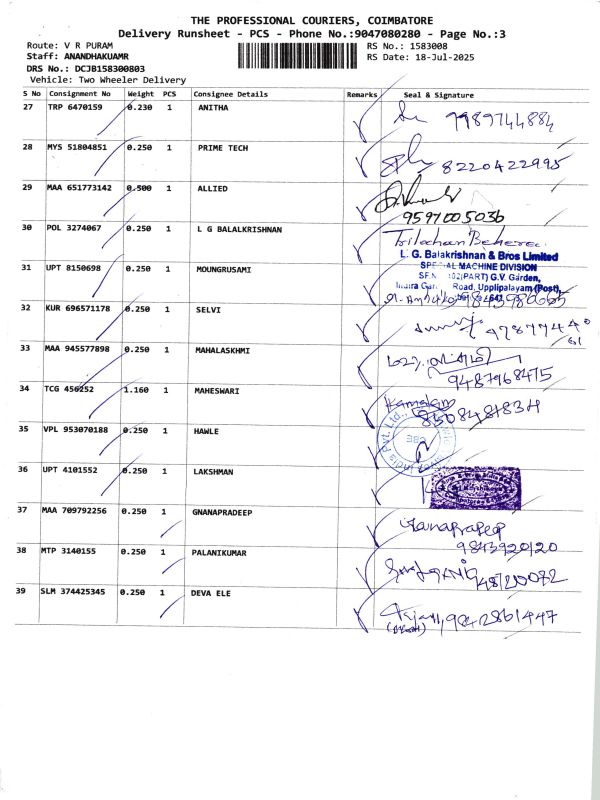 THE PROFESSIONAL COURIERS, COIMBATORE
Delivery Runsheet - PCS - Phone No.:9047080280 - Page No.:3
Route: V R PURAM
RS No.: 1583008
Staff: ANANDHAKUAMR
RS Date: 18-Jul-2025
DRS No.: DCJB158300803
Vehicle: Two Wheeler Delivery
S No Consignment No Weight PCS Consignee Details Remarks Seal & Signature
27 TRP 6470159 0.230 1 ANITHA 7989744884
28 MYS 51804851 0.250 1 PRIME TECH 8220422995
29 MAA 651773142 0.500 1 ALLIED
9597005036
30 POL 3274067 0.250 1 L G BALALKRISHNAN Trilochan Behera
L. G. Balakrishnan & Bros Limited
SPECIAL MACHINE DIVISION
31 UPT 8150698 0.250 1 MOUNGRUSAMI
(PART) G.V. Garden,
Road, Upplipalayam (Post),
32 KUR 696571178 0.250 1 SELVI
33 MAA 945577898 0.250 1 MAHALASKHMI
9487968475
34 TCG 456252 1.160 1 MAHESWARI Kamalam
8508481834
35 VPL 953070188 0.250 1 HAWLE
India Pvt. Ltd.
36 UPT 4101552 0.250 1 LAKSHMAN
37 MAA 709792256 0.250 1 GNANAPRADEEP Gnanapradeep
9843920120
38 MTP 3140155 0.250 1 PALANIKUMAR
39 SLM 374425345 0.250 1 DEVA ELE 9842861447